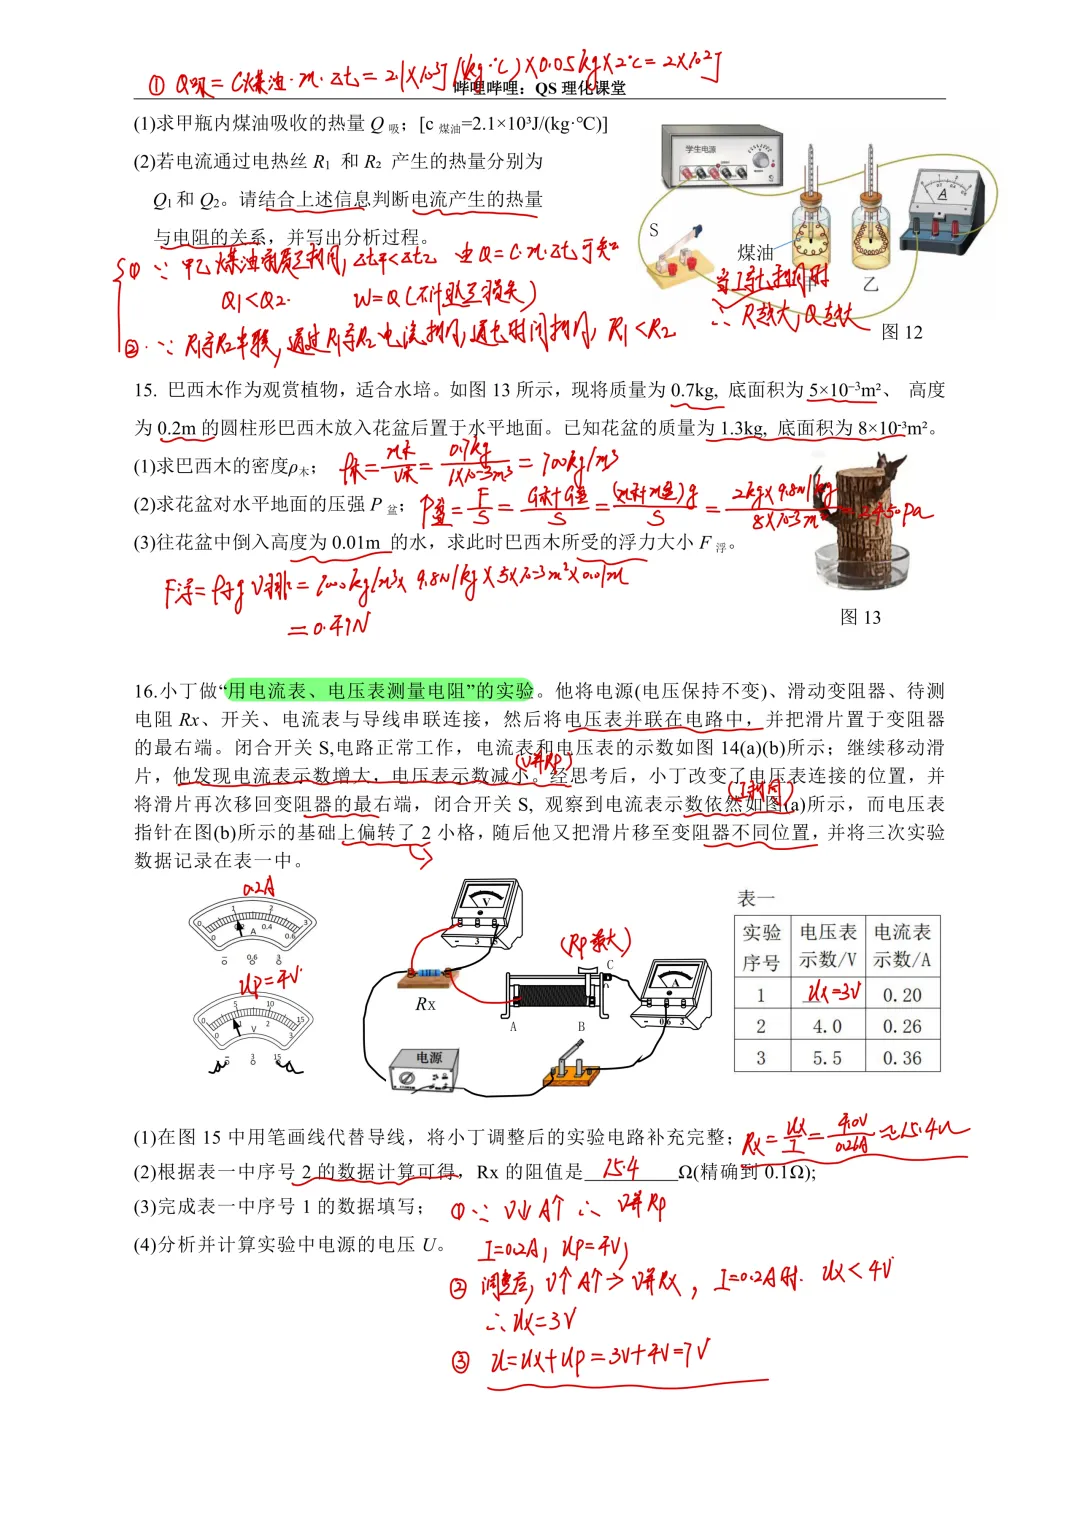 ① Q吸=C煤油·m·Δt=2.1×10³J/(kg·℃)×0.05kg×2℃=2×10²J
哔哩哔哩：QS 理化课堂
(1)求甲瓶内煤油吸收的热量 Q 吸；[c 煤油=2.1×10³J/(kg·℃)]
(2)若电流通过电热丝 R₁ 和 R₂ 产生的热量分别为
Q₁ 和 Q₂。请结合上述信息判断电流产生的热量
与电阻的关系，并写出分析过程。
① ∵ 甲乙煤油质量相同，Δt甲<Δt乙 由Q=C·m·Δt，可知
Q1<Q2. W=Q(不计热量损失)
② ∵ R1与R2串联，通过R1与R2电流相同，通电时间相同，R1<R2
学生电源
S
煤油
甲
乙
A
当I与t相同时
∴ R越大，Q越大
图 12
15. 巴西木作为观赏植物，适合水培。如图 13 所示，现将质量为 0.7kg, 底面积为 5×10⁻³m²、 高度
为 0.2m 的圆柱形巴西木放入花盆后置于水平地面。已知花盆的质量为 1.3kg, 底面积为 8×10⁻³m²。
(1)求巴西木的密度ρ木；
ρ木=m木/V木=0.7kg/1×10-3m³=700kg/m³
(2)求花盆对水平地面的压强 P 盆；
P盆=F/S=G木+G盆/S=(m木+m盆)g/S=2kg×9.8N/kg/8×10-3m²=2450Pa
(3)往花盆中倒入高度为 0.01m 的水，求此时巴西木所受的浮力大小 F 浮。
F浮=ρ水gV排=1000kg/m³×9.8N/kg×5×10-3m²×0.01m
=0.49N
图 13
16.小丁做“用电流表、电压表测量电阻”的实验。他将电源(电压保持不变)、滑动变阻器、待测
电阻 Rx、开关、电流表与导线串联连接，然后将电压表并联在电路中，并把滑片置于变阻器
的最右端。闭合开关 S,电路正常工作，电流表和电压表的示数如图 14(a)(b)所示；继续移动滑
(V并Rp)
片，他发现电流表示数增大，电压表示数减小。经思考后，小丁改变了电压表连接的位置，并
(I相同)
将滑片再次移回变阻器的最右端，闭合开关 S, 观察到电流表示数依然如图(a)所示，而电压表
指针在图(b)所示的基础上偏转了 2 小格，随后他又把滑片移至变阻器不同位置，并将三次实验
数据记录在表一中。
0.2A
0 1 2 3
0 0.2 0.4 0.6
A
− 0.6 3
Up=4V
0 5 10 15
0 1 2 3
V
− 3 15
V
− 3 15
Rx
(Rp最大)
C
A B
A
− 0.6 3
电源
表一
实验序号 电压表示数/V 电流表示数/A
1 Ux=3V 0.20
2 4.0 0.26
3 5.5 0.36
(1)在图 15 中用笔画线代替导线，将小丁调整后的实验电路补充完整；
Rx=Ux/I=4.0V/0.26A≈15.4Ω
(2)根据表一中序号 2 的数据计算可得，Rx 的阻值是 15.4 Ω(精确到 0.1Ω);
(3)完成表一中序号 1 的数据填写；
① ∵ V↓ A↑ ∴ V并Rp
(4)分析并计算实验中电源的电压 U。
I=0.2A, Up=4V,
② 调整后，V↑ A↑→V并Rx，I=0.2A时. Ux<4V
∴ Ux=3V
③ U=Ux+Up=3V+4V=7V